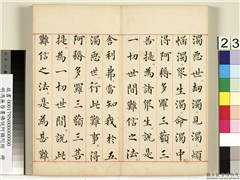 濁惡世劫濁見濁煩
惱濁眾生濁命濁中
得阿耨多羅三藐三
菩提為諸眾生說是
一切世間難信之法
舍利弗當知我於五
濁惡世行此難事得
阿耨多羅三藐三菩
提為一切世間說此
難信之法是為甚難